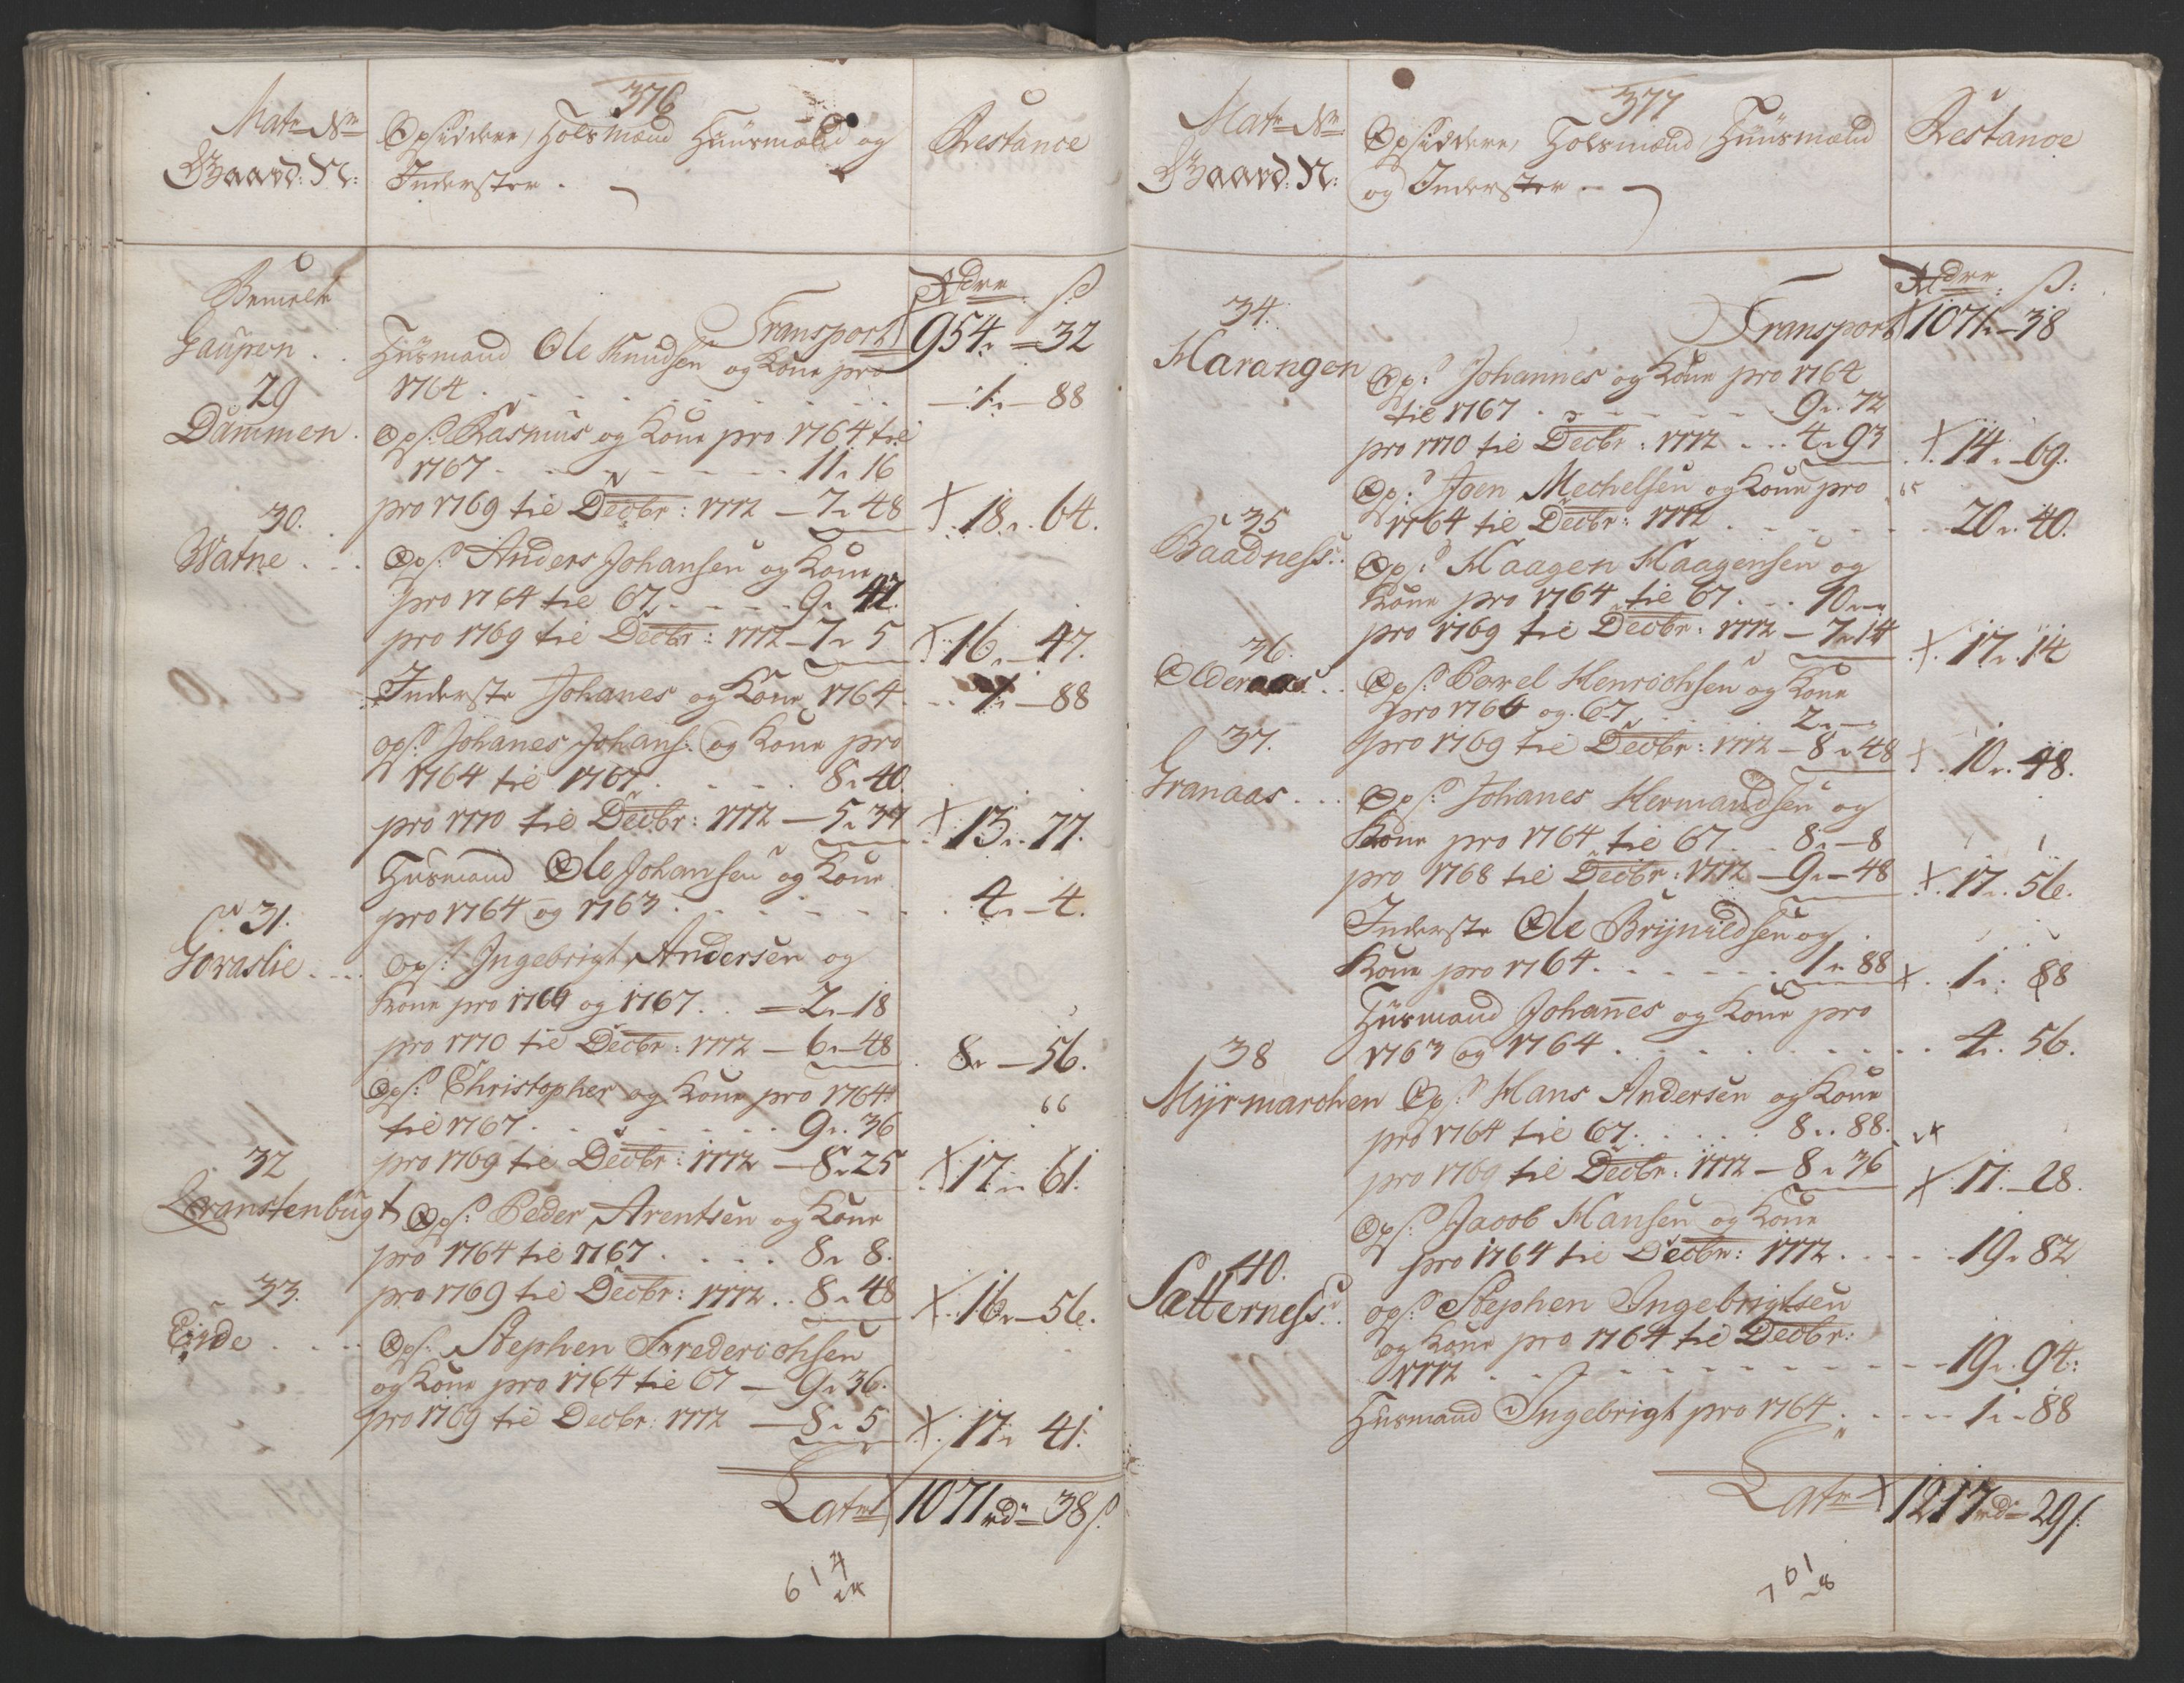 376
Matr Nr
Gaard: N:
Opsiddere, Holsmænd Huusmænd og
Inderster. —
Restance
Rdre ß
Transport 954 – 32
Gaupen . .
Huusmand Ole Knudsen og Kone pro
1764 . . . . . 1 – 88
29
Dammen .
Ops: Rasmus og Kone pro 1764 til
1767 - - - - - 11 „ 16
pro 1769 til Decbr: 1772 – 7 „ 48 X 18 „ 64.
30.
Watne . . .
Ops: Anders Johansen og Kone
pro 1764 til 67 . - - - 9 „ 42.
pro 1769 til Decbr: 1772 – 7 „ 5 X 16 „ 47.
Inderste Johanes og Kone 1764 . . . 1 – 88
ops: Johanes Johans: og Kone pro
1764 til 1767 . . . . 8 „ 40.
pro 1770 til Decbr: 1772 – 5 „ 37 X 13 „ 77.
Huusmand Ole Johansen og Kone
pro 1764 og 1763 . . . . . 4 „ – 4.
31.
Goraslie . . .
Ops: Ingebrigt Andersen og
Kone pro 1764 og 1767 . . = 2 „ 18
pro 1770 til Decbr: 1772 – 6 „ 48 . 8 „ – 56.
Ops: Christopher og Kone pro 1764
til 1767 . . . . . 9 „ 36
66
pro 1769 til Decbr: 1772 – 8 „ 25 X 17 „ 61.
32
Kranstenbugt
Ops: Peder Arentsen og Kone
pro 1764 til 1767 . . . . 8 „ 8.
pro 1769 til Decbr: 1772 . . 8 „ 48 X 16 „ – 56.
33.
Eide . . . .
Ops: Stephen Frederichsen
og Kone pro 1764 til 67 – 9 „ 36.
pro 1769 til Decbr: 1772 – 8 „ 5 X 17 „ 41.
Latr 1071 rd – 38 ß.
614
377
Matr Nr
Gaard: N:
Opsiddere, Holsmænd, Huusmænd
og Inderster - —
Restance
Rdre ß:
Transport 1071 – 38
34.
Harangen
Ops: Johannes og Kone pro 1764
til 1767 . - - - - 9 „ 72
pro 1770 til Decbr: 1772 . . . 4 „ 93 X 14 „ – 69.
Ops: Joen Mechelsen og Kone pro
1764 til Decbr: 1772 . . . . . 20 „ 40.
35
Baadness . .
Ops: Haagen Haagensen og
Kone pro 1764 til 67 . . . 10 „ –
pro 1769 til Decbr: 1772 – 7 „ 14 X 17 „ 14
36.
Olderaas . .
Ops: Povel Henrichsen og Kone
pro 1764 og 67 . . . . 2 „ –
pro 1769 til Decbr: 1772 – 8 „ 48 X 10 „ 48.
37.
Granaas . . .
Ops: Johanes Hermandsen og
Kone pro 1764 til 67 . . 8 „ – 8
pro 1768 til Decbr: 1772 – 9 „ – 48 X 17 „ 56.
Inderste Ole Brynildsen og
Kone pro 1764 . . . . . 1 „ 88 X . 1 „ 88
Huusmand Johannes og Kone pro
1763 og 1764 . . . . . 4 „ 56.
38
Myrmarchen
Ops: Hans Andersen og Kone
pro 1764 til 67 . . . . 8 „ 88.
pro 1769 til Decbr: 1772 – 8 „ 36 X 17 – 28.
Ops: Jacob Hansen og Kone
pro 1764 til Decbr: 1772 . . . . 19 „ 82
40.
Sætterness . .
ops: Stephen Ingebrigtsen
og Kone pro 1764 til Decbr:
1772 . . . . . . 19 „ 94:
Huusmand Ingebrigt pro 1764 . . . . 1 „ – 88
Latr 1217 rd – 29 ß.
761